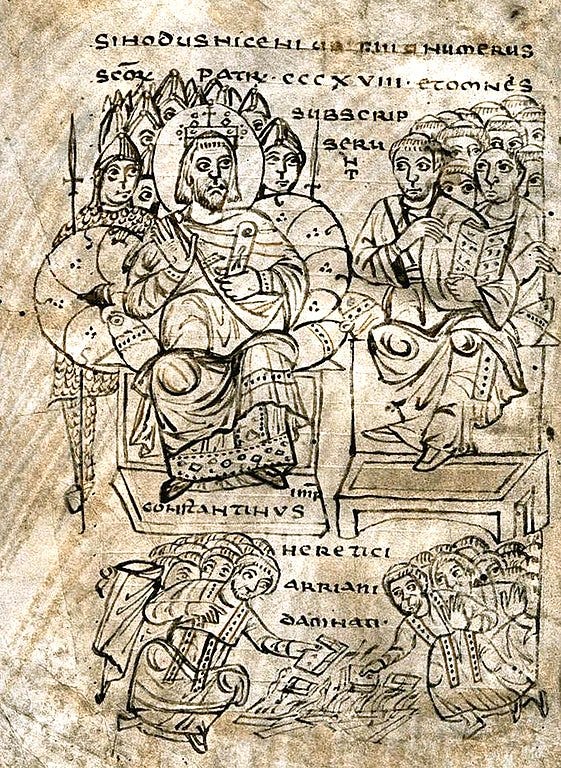 SINODUS NICENI NUMERUS
SCŌR PATR· CCCXVIII· ET OMNES
SUBSCRIP
SERU
NT
IMP
CONSTANTINUS
HERETICI
ARRIANI
DAMNATI·